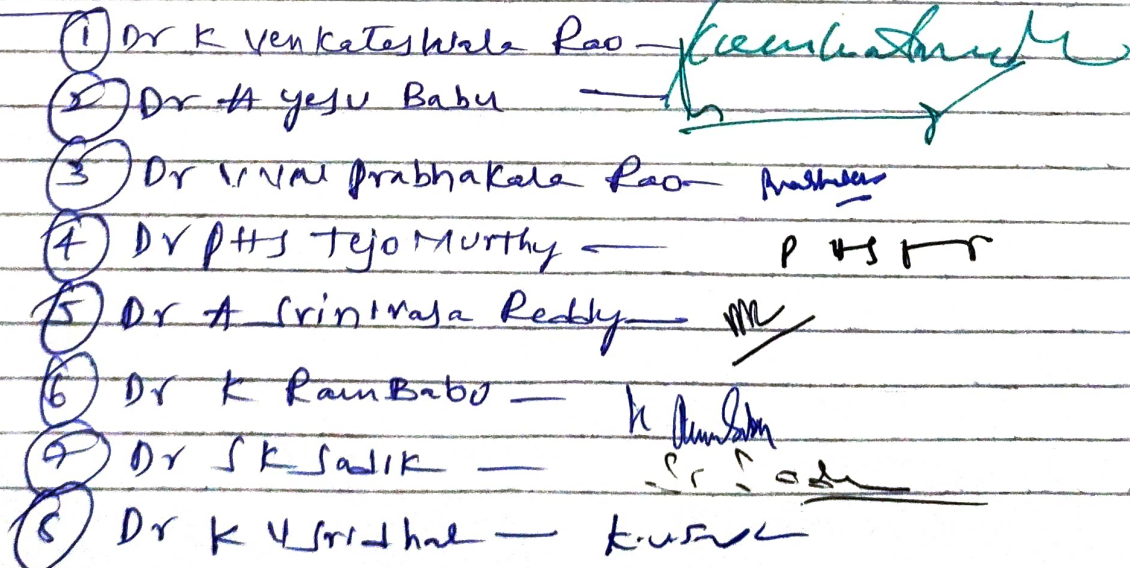 1 Dr K Venkateswala Rao —
2 Dr A Yesu Babu —
3 Dr V V M Prabhakala Rao — Prabhakar
4 Dr PHS Tejo Murthy — P HS
5 Dr A Srinivasa Reddy —
6 Dr K RamBabu — K RamBabu
7 Dr SK Sadik — Sk Sadi
8 Dr K V Sridhal — K.V.S